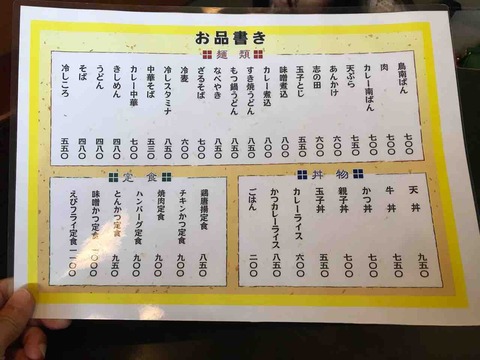 お品書き
麺類
鳥南ばん 七〇〇
肉 七〇〇
カレー南ばん 七〇〇
天ぷら 七五〇
あんかけ 六〇〇
志の田 六〇〇
玉子とじ 五五〇
味噌煮込
カレー煮込 八〇〇
すき焼うどん 八五〇
もつ鍋うどん 八五〇
なべやき
ざるそば
冷麦
冷しスタミナ 八五〇
中華そば 五五〇
カレー中華 七〇〇
きしめん 四八〇
うどん 四八〇
そば 四八〇
冷しころ 五五〇
丼物
天丼 九五〇
牛丼 七五〇
かつ丼 七〇〇
親子丼 七〇〇
玉子丼 六五〇
カレーライス 六〇〇
かつカレーライス 八五〇
ごはん 二〇〇
定食
鶏唐揚定食 八五〇
チキンかつ定食 九〇〇
焼肉定食 九〇〇
ハンバーグ定食 九〇〇
とんかつ定食 九五〇
味噌かつ定食 一〇〇〇
えびフライ定食 一一〇〇